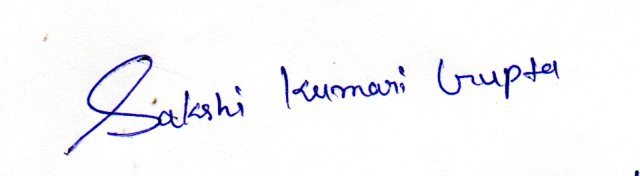 Sakshi Kumari Gupta